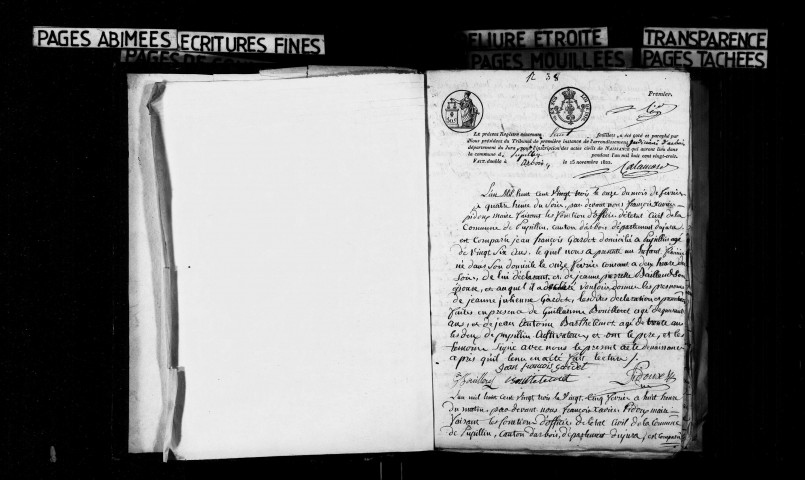 PAGES ABIMEES ECRITURES FINES
RELIURE ETROITE
TRANSPARENCE
PAGES MOUILLEES
PAGES TACHEES
R 38
Premier.
Le présent Registre contenant huit feuillets, a été coté et paraphé par
Nous président du Tribunal de première instance de l'arrondissement judiciaire d'arbois
département du Jura pour l'inscription des actes civils de NAISSANCE qui auront lieu dans
la commune de Pupillin pendant l'an mil huit cent vingt-trois.
FAIT double à arbois, le 15 novembre 1822.
L'an Mil huit cent Vingt trois le onze du mois de fevrier
a quatre heure du Soir, par devant nous François Xavier
Pidoux maire faisant les fonction d'officier de l'état Civil de la
Commune de Pupillin, canton d'arbois département du jura
est Comparu jean françois Gardet domicilié a Pupillin agé
de Vingt Six ans, le quel nous a presenté un Enfant
né dans Son domicile le onze fevrier courant a deux heure du
Soir, de lui déclarant, et de jeanne pierrette Son
épouse, et auquel il a déclaré vouloir donner les prenoms
de jeanne julienne Gardet, les dites declaration et presentation
faites en presence de Guillaume Bouilleret agé de quarante
ans, et de jean Antoine Barthelemot agé de trente ans
les deux de pupillin Cultivateur, et ont le pere, et les
temoins Signé avec nous le present acte de naissance
après qu'il leur en a été fait lecture /.
jean françois Gardet
Bouilleret Barthelemot Pidoux
L'an mil huit cent Vingt trois le Vingt Cinq fevrier a huit heure
du matin, par devant nous François Xavier Pidoux maire
faisant les fonction d'officier de l'état Civil de la Commune
de Pupillin, canton d'arbois, département du jura, est Comparu